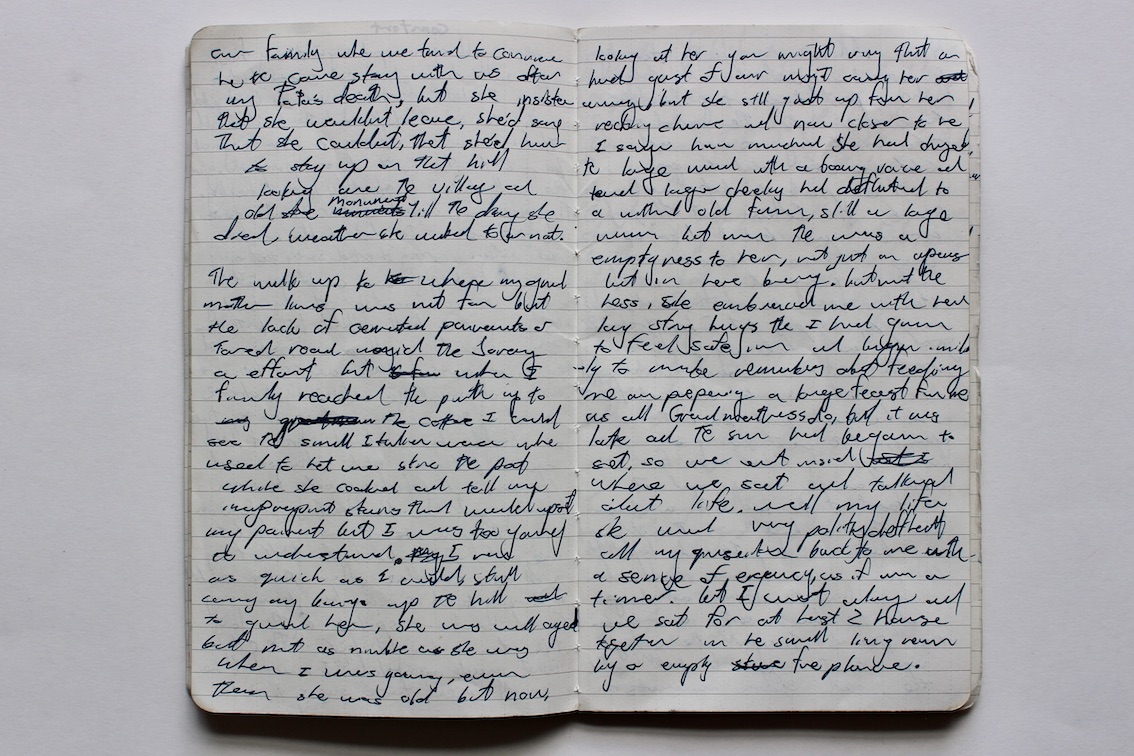 our family who we tried to convince
he to come stay with us after
my Papa's death, but she insisted
that she wouldn't leave, she'd sang
that she couldn't, that she'd have
to stay up on that hill
looking over the village and
old she monument till the day she
died, weather she wanted to or not.
The walk up to where my grand
mother lives was not far but
the lack of cemented pavements or
tared road the Journey
a effort but when I
finally reached the path up to
my the I could
see the small Italian women who
used to let me stir the pot
while she cooked and tell me
stories that would upset
my parent but I was too young
to understand. I ran
as quick as I could, still
carry my luggage up the hill and
to greet her, She was well aged
but not as nimble as she was
when I was young, even
then she was old but now,
looking at her you might say that an
hard gust of wind might carry her
away, but she still got up from her
chair and now closer to me
I saw how much she had changed,
the large women with a booming voice and
larger cheeks had deflated to
a old form, still a large
women but now there was a
emptyness to her, not just an
but in here being. but not the
less, she embraced me with her
big strong hugs the I had grown
to feel safe in and began
ly to make remarks about feeding
me and preparing a large feast for me
as all Grandmothers do, but it was
late and the sun had began to
set, so we went inside
where we sat and talked
about life, well my life,
she would very politely deflect
all my question back to me with
a sense of urgency as if on a
timer. but I and
we sat for at least 2 hours
together in the small living room
by a empty fire place.